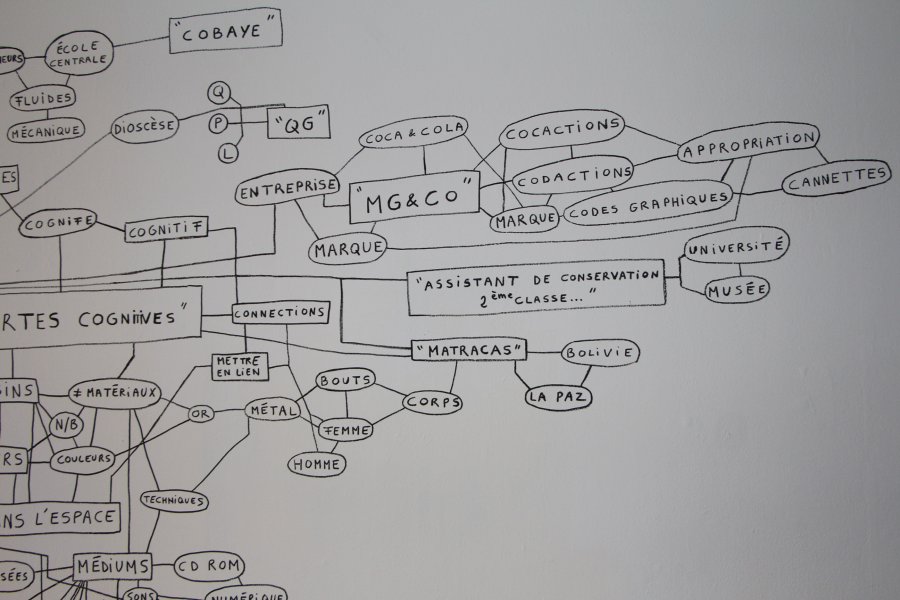 "COBAYE"
ÉCOLE
CENTRALE
FLUIDES
MÉCANIQUE
DIOSCÈSE
Q
P
L
"QG"
COCA & COLA
COCACTIONS
APPROPRIATION
ENTREPRISE
"MG&CO"
CODACTIONS
CANNETTES
MARQUE
CODES GRAPHIQUES
MARQUE
ES
COGNIFE
COGNITIF
UNIVERSITÉ
"ASSISTANT DE CONSERVATION
2ème CLASSE..."
MUSÉE
RTES COGNIIVES"
CONNECTIONS
"MATRACAS"
BOLIVIE
METTRE
EN LIEN
LA PAZ
INS
≠ MATÉRIAUX
BOUTS
CORPS
OR
MÉTAL
N/B
FEMME
RS
COULEURS
HOMME
TECHNIQUES
NS L'ESPACE
SÉES
MÉDIUMS
CD ROM
SONS
NUMÉRIQUE